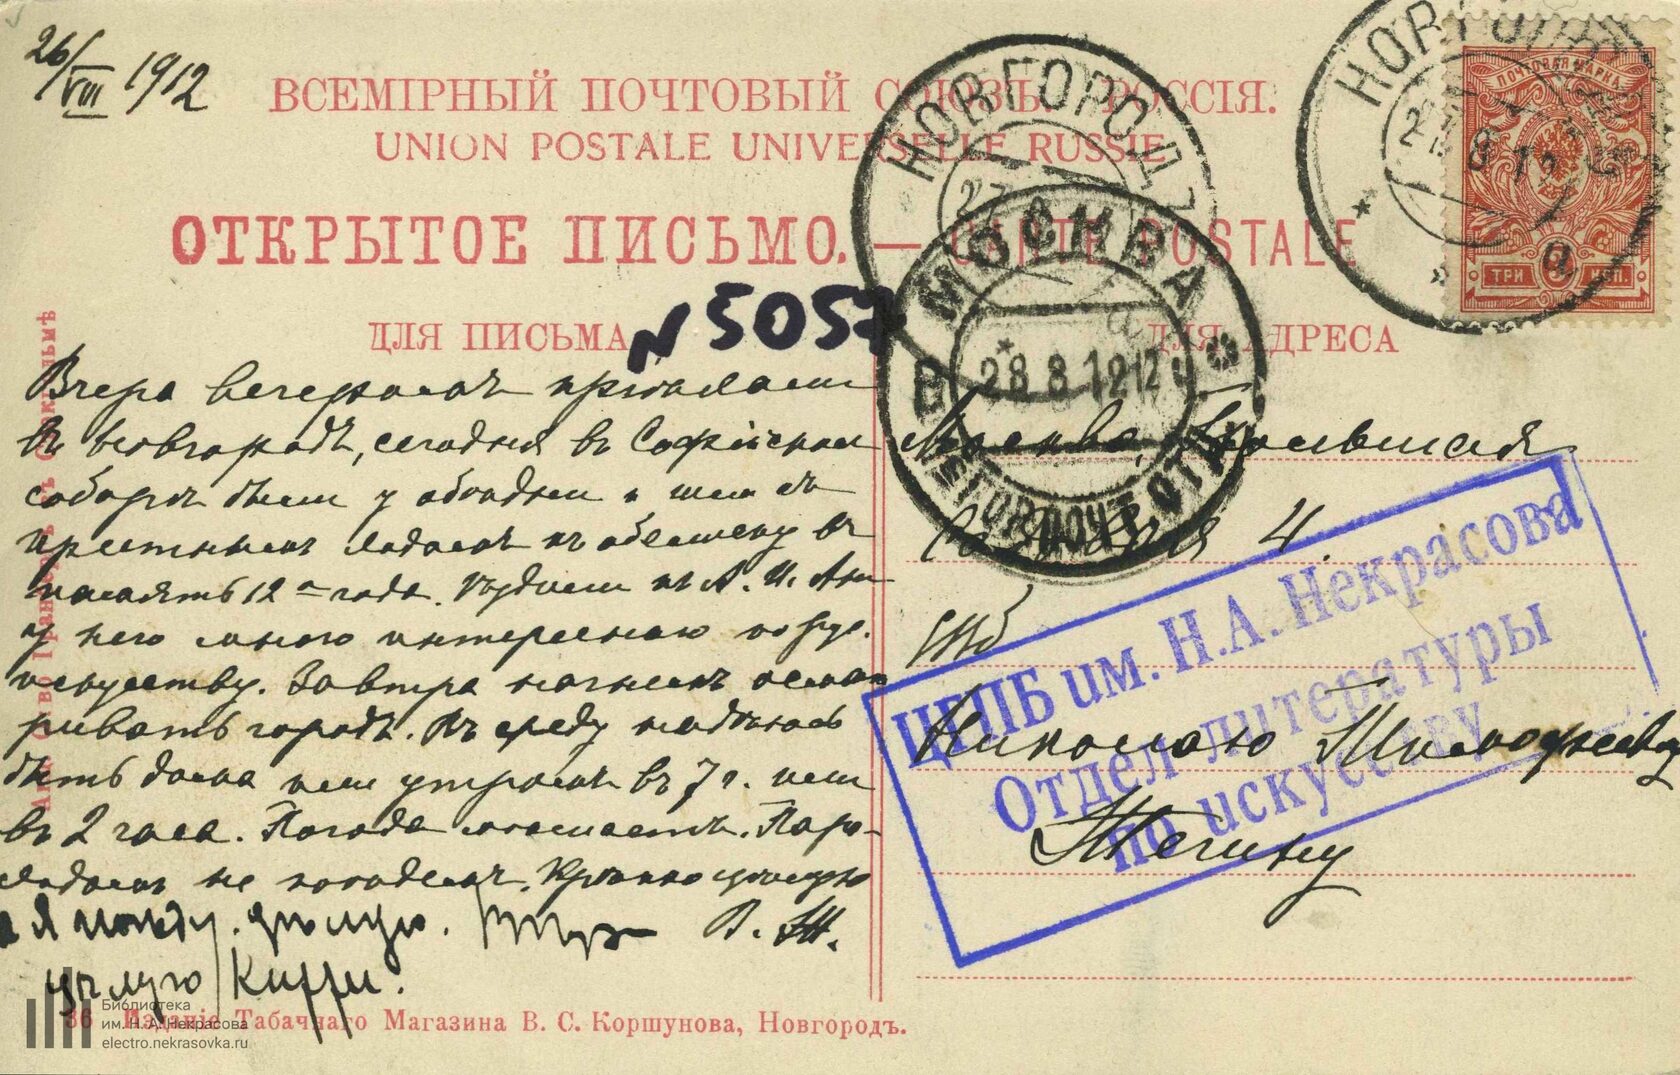 26/VIII 1912
ВСЕМІРНЫЙ ПОЧТОВЫЙ СОЮЗЪ РОССІЯ.
UNION POSTALE UNIVERSELLE RUSSIE
ОТКРЫТОЕ ПИСЬМО. — CARTE POSTALE
ДЛЯ ПИСЬМА
ДЛЯ АДРЕСА
N 5057
НОВГОРОДЪ
27
МОСКВА
28 8 12 12
ГОР. ПОЧТ. ОТД.
НОВГОРОДЪ
27 8 12
а
ПОЧТОВАЯ МАРКА
ТРИ 3 КОП.
Вчера вечеромъ пріѣхали
въ Новгородъ, сегодня въ Софійскомъ
соборѣ были у обѣдни и шли съ
крестнымъ ходомъ
память 12-го года. къ А. И. Ан
у него много интереснаго по
искусству. Завтра начнемъ осмат
ривать городъ. Въ среду надѣюсь
быть дома или утромъ въ 7 ч. или
въ 2 часа. Погода Паро-
ходомъ не поѣдемъ. Крѣпко цѣлую
В. Ж.
и я цѣлую.
цѣлую Китти.
Москва, Большая
4.
Николаю Тимофеевичу
Жегину
ЦГПБ им. Н.А. Некрасова
Отдел литературы
по искусству
36 Изданіе Табачнаго Магазина В. С. Коршунова, Новгородъ.
Библиотека
им. Н. А. Некрасова
electro.nekrasovka.ru